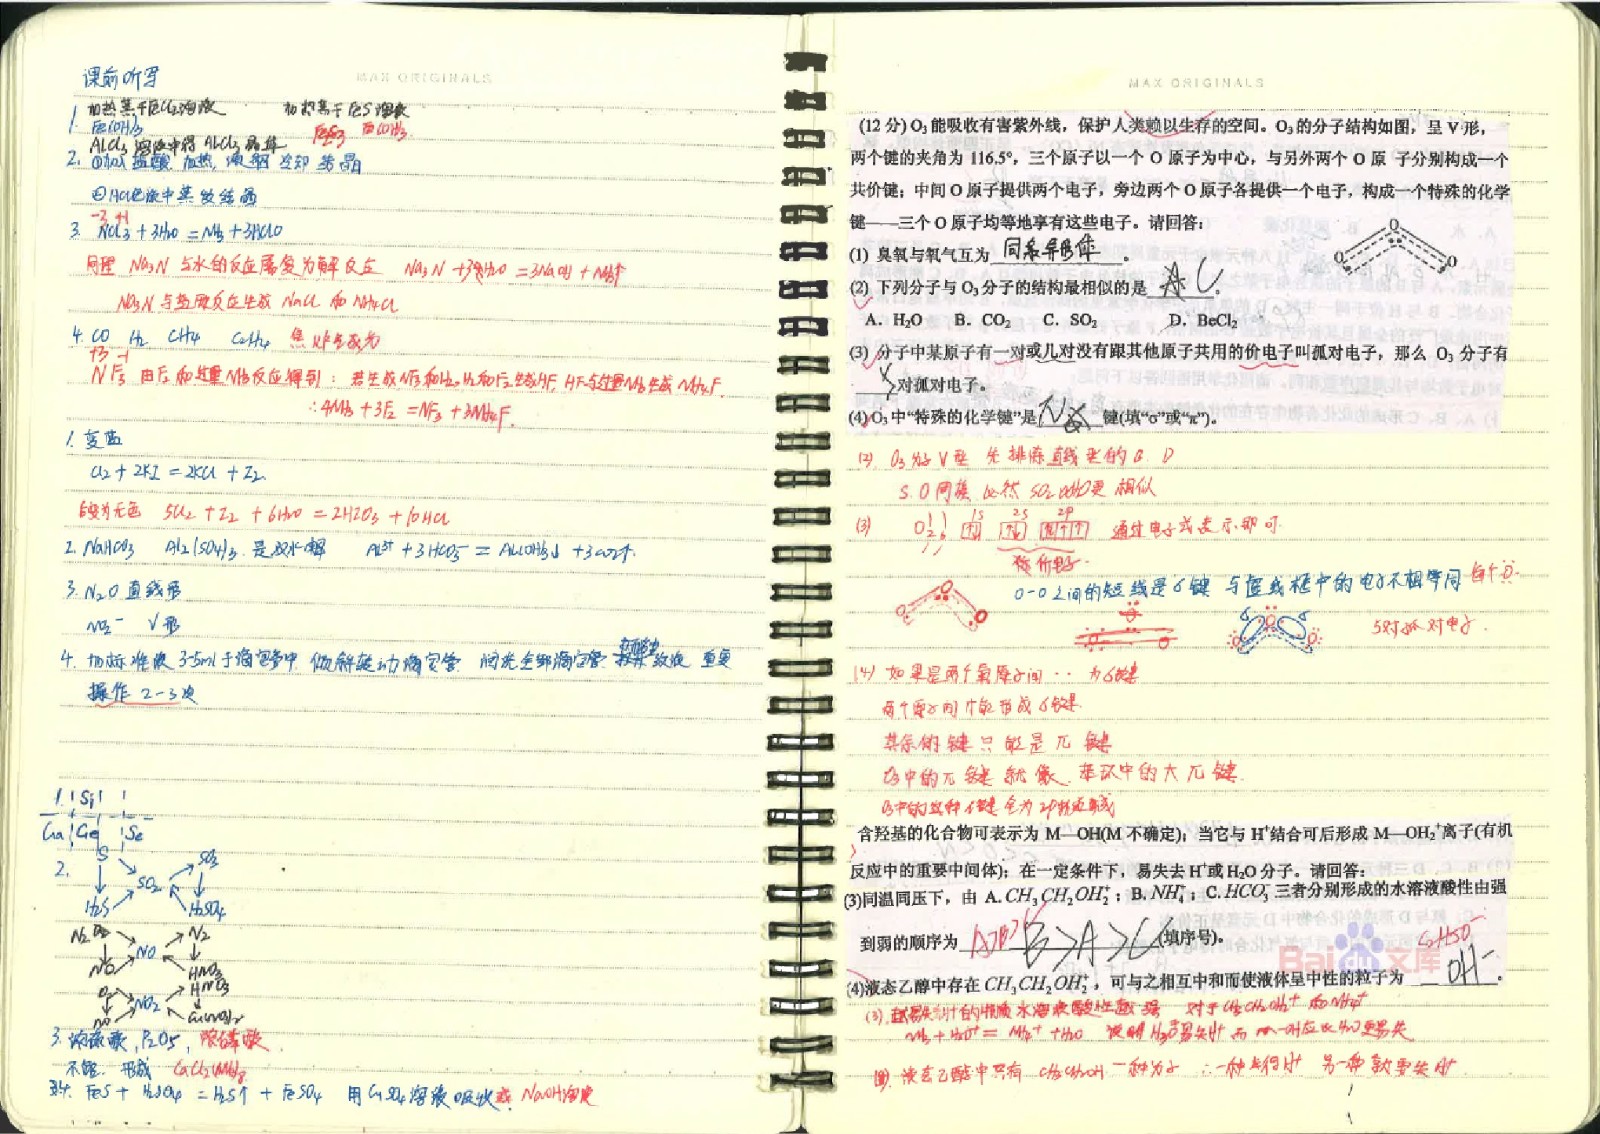 课前听写
MAX ORIGINALS
1. 加热蒸干FeCl2溶液 加热蒸干FeS溶液
Fe(OH)3 Fe(OH)3
AlCl3溶液中得AlCl3晶体
2. ①加盐酸 加热 冷却结晶
②HCl气流中蒸发结晶
-3 +1
3. NCl3+3H2O=NH3+3HClO
同理 Na3N与水的反应属复分解反应 Na3N+3H2O=3NaOH+NH3↑
Na3N与盐酸反应生成NaCl和NH4Cl
4. CO H2 CH4 C2H4 焦炉气成分
+3 -1
NF3 由F2和过量NH3反应得到：若生成NF3和H2,H2和F2生成HF,HF与过量NH3生成NH4F.
∴4NH3+3F2=NF3+3NH4F.
1. 变蓝
Cl2+2KI=2KCl+I2
后变为无色 5Cl2+I2+6H2O=2HIO3+10HCl
2. NaHCO3 Al2(SO4)3 是双水解 Al3++3HCO3-=Al(OH)3↓+3CO2↑
3. N2O直线形
NO2- V形
4. 加标准液3-5ml于滴定管中 倾斜转动滴定管 润洗全部滴定管 放液 重复
操作2-3次
1. Si
Ga Ge Se
2. S SO2 SO3
H2S H2SO4
N2 NO N2
HNO3
O2 NO2 HNO3
NO
3. 浓硫酸,P2O5, 浓磷酸
不能. 形成 CaCl2(NH3)8
4. FeS+H2SO4=H2S↑+FeSO4 用CuSO4溶液吸收或NaOH溶液
MAX ORIGINALS
(12分)O3能吸收有害紫外线，保护人类赖以生存的空间。O3的分子结构如图，呈V形，
两个键的夹角为116.5°，三个原子以一个O原子为中心，与另外两个O原 子分别构成一个
共价键；中间O原子提供两个电子，旁边两个O原子各提供一个电子，构成一个特殊的化学
键——三个O原子均等地享有这些电子。请回答：
O
O O
(1) 臭氧与氧气互为 同素异形体 。
(2) 下列分子与O3分子的结构最相似的是 A C 。
A. H2O B. CO2 C. SO2 D. BeCl2
(3) 分子中某原子有一对或几对没有跟其他原子共用的价电子叫孤对电子，那么 O3 分子有
对孤对电子。
(4) O3中“特殊的化学键”是 键(填“σ”或“π”)。
(2) O3为V型 先排除直线型的B D
S、O同族 必然SO2与O3更相似
(3) O 1s 2s 2p 通过电子式表示即可
称价电子.
O-O之间的短线是σ键 与虚线框中的电子不相等同
5对孤对电子.
(4) 如果是两个氧原子间·· 为σ键
两个原子间只能形成σ键
其余的键只能是π键
O3中的π键就像苯环中的大π键.
含羟基的化合物可表示为 M—OH(M 不确定)；当它与 H+结合可后形成 M—OH2+离子(有机
反应中的重要中间体)；在一定条件下，易失去H+或H2O分子。请回答：
(3)同温同压下，由 A.CH3CH2OH2+；B.NH4+；C.HCO3-三者分别形成的水溶液酸性由强
到弱的顺序为 A>B>C B>A>C (填序号)。
(4)液态乙醇中存在CH3CH2OH2+，可与之相互中和而使液体呈中性的粒子为 OH- 。
C2H5O-
Bai 文库
(3). 越易失H+的物质水溶液酸性越强 对于CH3CH2OH2+和NH4+
NH3+H3O+=NH4++H2O 说明H3O+易失H+
(4). 液态乙醇中只有CH3CH2OH一种分子 ∴一种为得H+ 另一种就要失H+